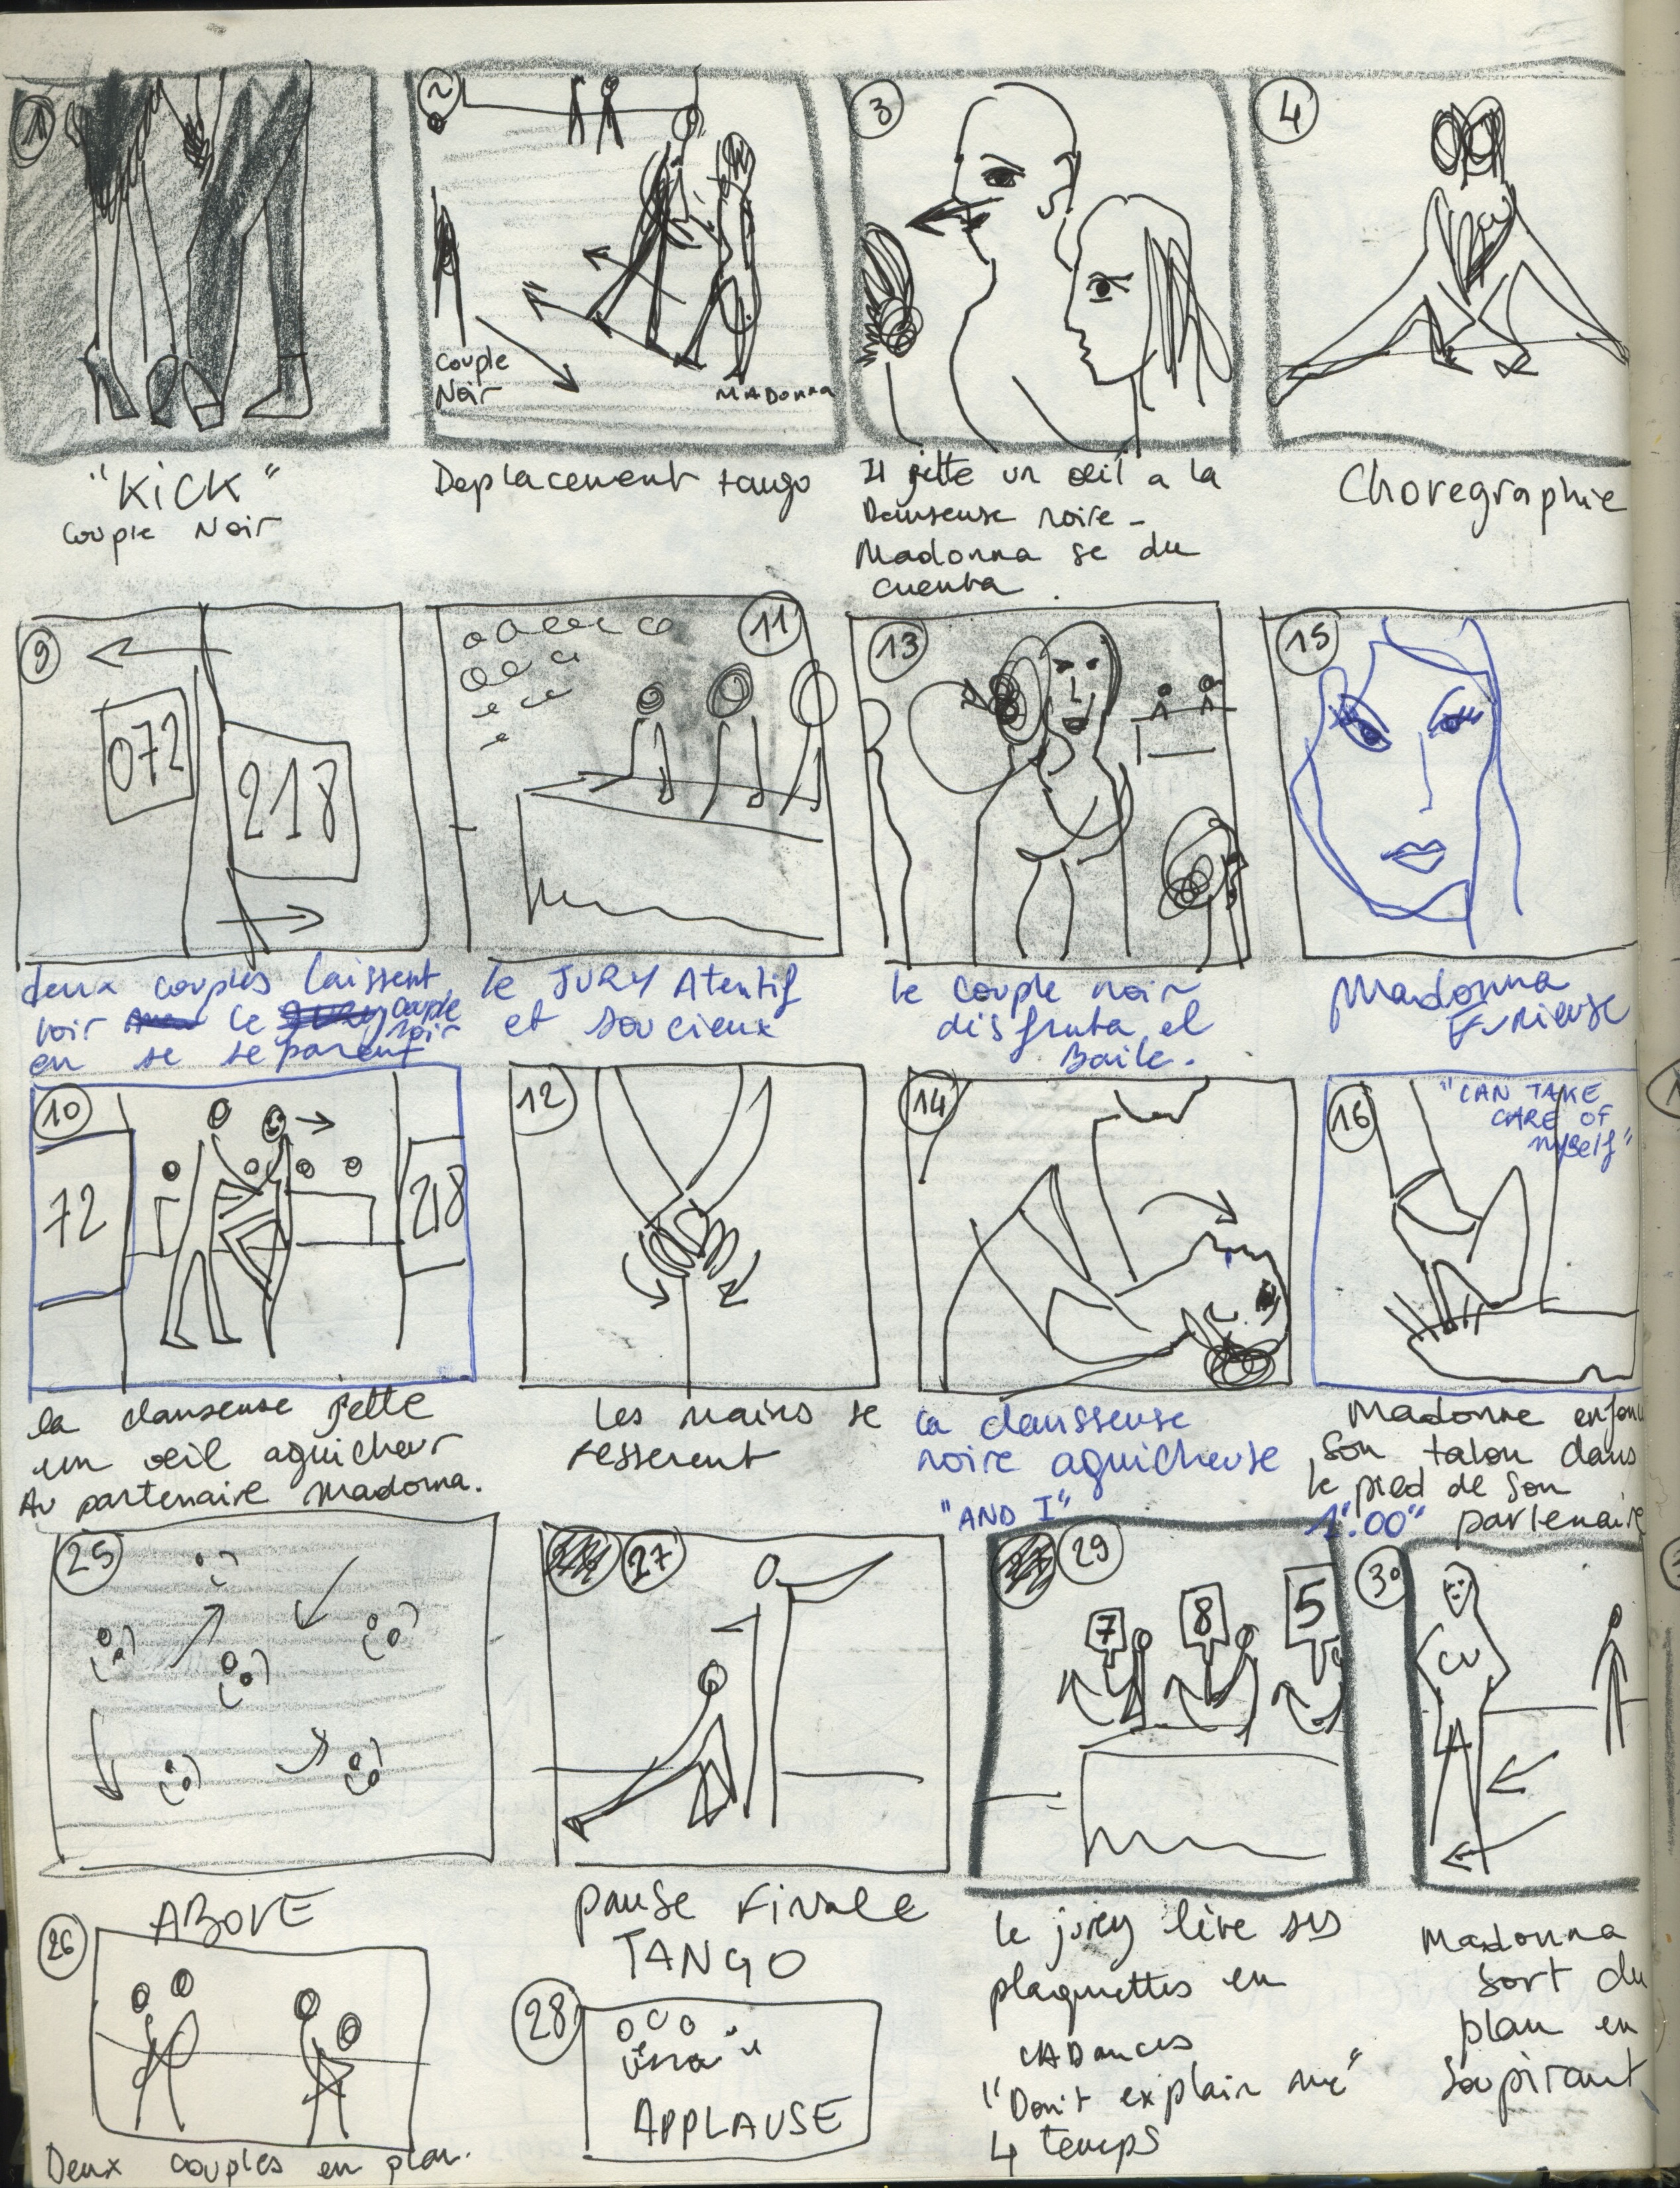 1
"KiCK"
couple Noir
2
couple
Noir
MADonna
Deplacement tango
3
Il jette un œil a la
Danseuse noire -
Madonna se da
cuenta.
4
Choregraphie
9
072
218
deux couples laissent
voir le couple
noir
en se separant
11
le JURY Atentif
et soucieux
13
le couple noir
disfruta el
Baile.
15
Madonna
Furieuse
10
72
218
la danseuse jette
un œil aguicheur
Au partenaire Madonna.
12
Les mains se
resserent
14
la dansseuse
noire aguicheuse
"AND I"
16
"CAN TAKE
CARE OF
MySelf"
Madonne
son talon dans
le pied de son
partenaire
1'.00"
25
ABOVE
27
pause Finale
TANGO
29
7 8 5
le jury lève ses
plaquettes en
CADances
"Don't explain me"
4 temps
30
Madonna
sort du
plan en
soupirant
26
Deux couples en plan.
28
APPLAUSE